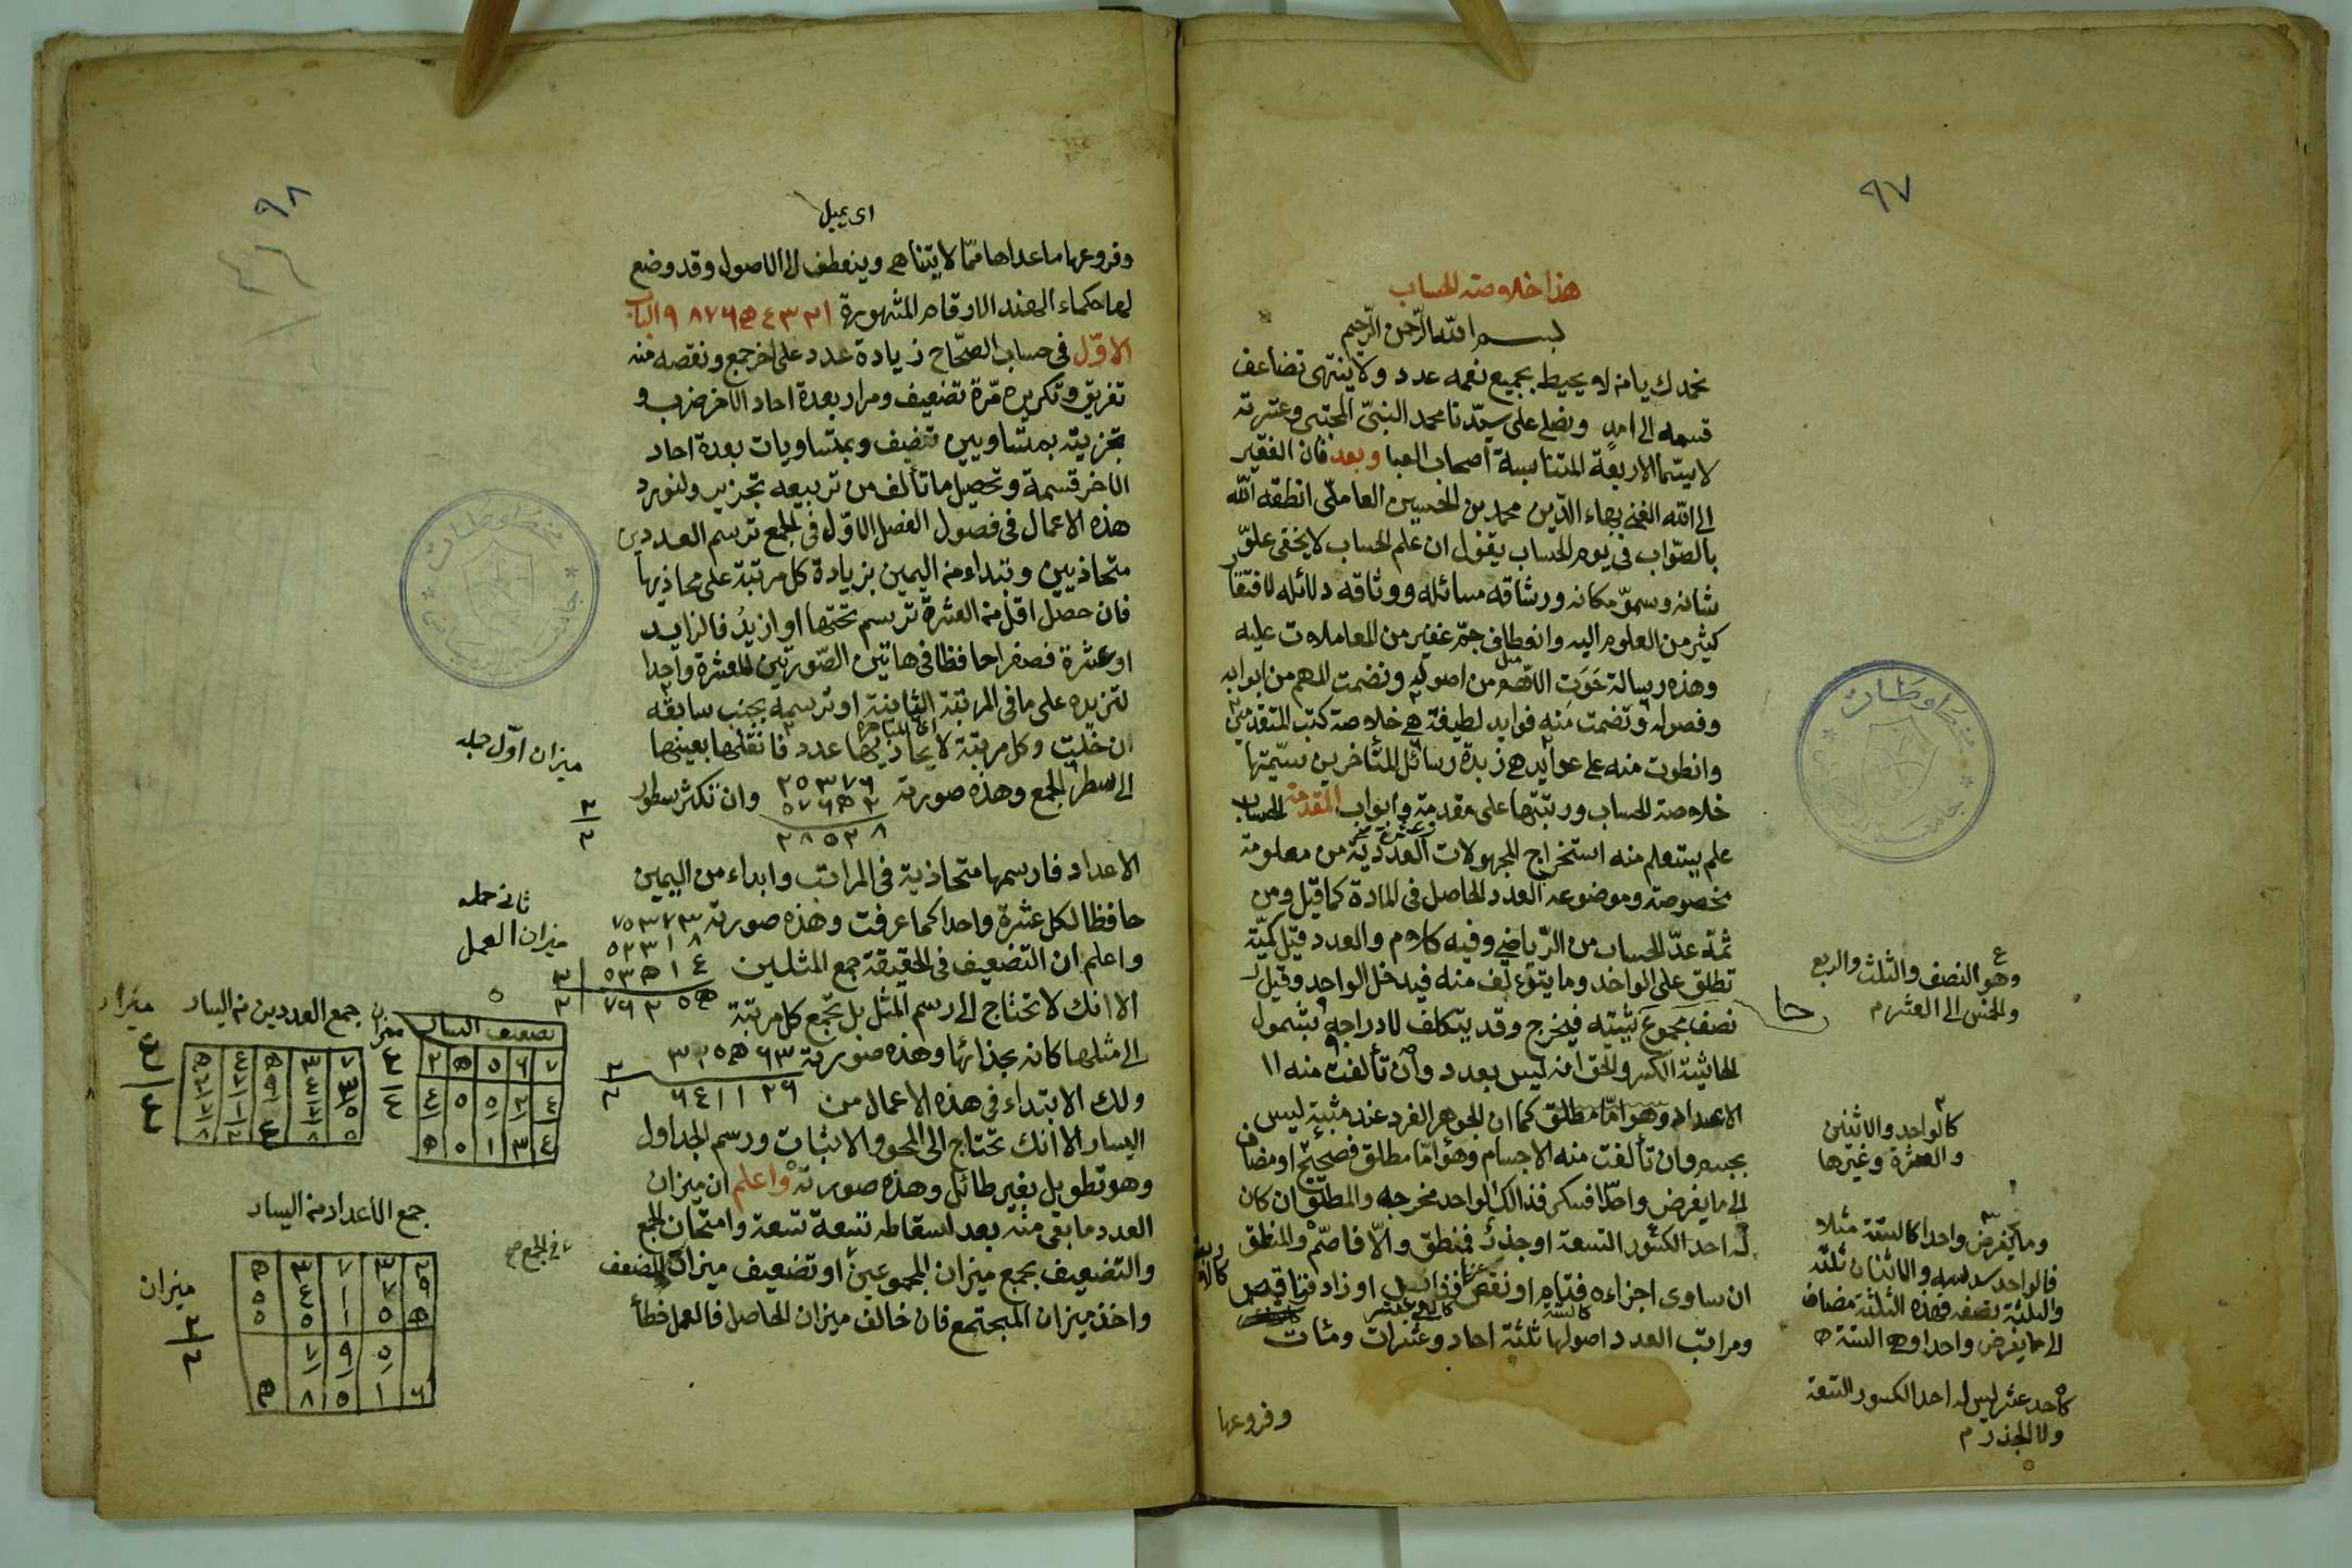 ٩٧
هذا خلاصة الحساب
بسم الله الرّحمن الرّحيم
نحمدك يا من لا يحيط بجميع نعمه عدد ولا ينتهى تضاعف
قسمه الى امد ونصلى على سيّدنا محمد النبىّ المجتبى وعترته
لا سيّما الاربعة المتناسبة اصحاب العبا وبعد فان الفقير
الى الله الغنى بهاء الدّين محمد بن الحسين العاملى انطقه الله
بالصّواب فى يوم الحساب يقول ان علم الحساب لا يخفى علوّ
شانه وسموّ مكانه ورشاقه مسائله ووثاقه دلائله لافتقار
كثير من العلوم اليه وانعطاف جمّ غفير من المعاملات عليه
وهذه رسالة حَوَتِ الاهم من اصوله ونضمت المهم من ابوابه
وفصوله وتضمت منه فوايد لطيفة هى خلاصة كتب المتقدمين
وانطوت منه على عوايد هى زبدة رسائل المتأخرين سمّيتها
خلاصة الحساب ورتبتها على مقدمة وابواب المقدمة الحساب
عشرة
علم يستعلم منه استخراج المجهولات العدديّة من معلومة
مخصوصة وموضوعه العدد الحاصل فى المادة كما قيل ومن
ثمة عدّ الحساب من الرّياضى وفيه كلام والعدد قيل كميّة
تطلق على الواحد وما يتؤلف منه فيدخل الواحد وقيل
نصف مجموع حاشيتيه فيخرج وقد يتكلف لادراجه بشمول
الحاشية الكسر والحق انه ليس بعدد وان تألفت منه الا
الاعداد وهو امّا مطلق كما ان الجوهر الفرد عند مثبتيه ليس
بجسم وان تألفت منه الاجسام وهو امّا مطلق فصحيح او مضاف
الى ما يفرض واحدا فكسر فذالك الواحد مخرجه والمطلق ان كان
له احد الكسور التسعة او جذر فمنطق والّا فاصمّ والمنطق
ان ساوى اجزاءه فتام او نقص عنها فزائد او زاد فناقص
كالستة
ومراتب العدد اصولها ثلثة احاد وعشرات ومئات
وفروعها
وهو النصف والثلث والربع
والخمس الى العشر م
كالواحد والاثنين
والعشرة وغيرها
وما يفرض واحدا كالستة مثلا
فالواحد سدسه والاثنان ثلثه
والثلثة نصفه فهذه الثلثة مضاف
الى ما يفرض واحدا وهى الستة
كاحد عشر ليس له احد الكسور التسعة
ولا الجذر م
٩٨
اى يميل
وفروعها ما عداها ممّا لا يتناهى وينعطف الى الاصول وقد وضع
لها حكماء الهند الارقام المشهورة ١ ٢ ٣ ٤ ٥ ٦ ٧ ٨ ٩ الباب
الاوّل فى حساب الصّحاح زيادة عدد على اخر جمع ونقصه منه
تفريق وتكريره مّرة تضعيف ومرار بعدة احاد الآخر ضرب و
تجزيته بمتساويين تنصيف وبمتساويات بعدة احاد
الاخر قسمة وتحصيل ما تألف من تربيعه تجذير ولنورد
هذه الاعمال فى فصول الفصل الاوّل فى الجمع ترسم العددين
متحاذيين وتبداء من اليمين بزيادة كل مرتبة على محاذيها
فان حصل اقل من العشرة ترسم تحتها او ازيدُ فالزايد
او عشرة فصفرا حافظا فى هاتين الصّورتين للعشرة واحدا
لتزيده على ما فى المرتبة الثانية او ترسمه بجنب سابقه
ان خليت وكل مرتبة لا يحاذيها عدد فانقلها بعينها
الى سطر الجمع وهذه صورته ٢٥٣٧٦ وان تكثر سطور
٥٧٦٥٢
الاعداد فارسمها متحاذية فى المراتب وابداء من اليمين
حافظا لكل عشرة واحدا كما عرفت وهذه صورته ٧٥٣٧٣
واعلم ان التضعيف فى الحقيقة جمع المثلين
الا انك لا تحتاج الى رسم المثل بل تجمع كل مرتبة
الى مثلها كانه بحذائها وهذه صورته ٣٢٥٥٦٣
٦٤١١٢٦
ولك الابتداء فى هذه الاعمال من
اليسار الا انك تحتاج الى المحو والاثبات ورسم الجداول
وهو تطويل بغير طائل وهذه صورته واعلم ان ميزان
العدد ما بقى منه بعد اسقاطه تسعة تسعة وامتحان الجمع
والتضعيف بجمع ميزان المجموعين او تضعيف ميزان المضعف
واخذ ميزان المجتمع فان خالف ميزان الحاصل فالعمل خطأ
ميزان اوّل جمله
ميزان العمل
تضعيف اليسار
٧ ٦ ٥ ٥ ٢
جمع العددين من اليسار
ميزان
جمع الأعداد من اليسار
ميزان